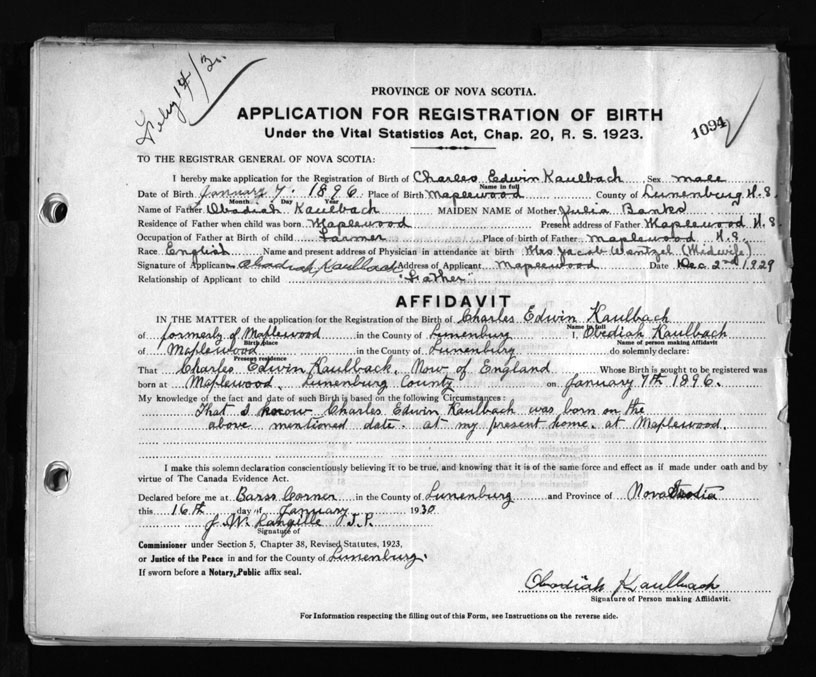 Feby 14/30.
PROVINCE OF NOVA SCOTIA.
APPLICATION FOR REGISTRATION OF BIRTH
Under the Vital Statistics Act, Chap. 20, R. S. 1923.
1094
TO THE REGISTRAR GENERAL OF NOVA SCOTIA:
I hereby make application for the Registration of Birth of Charles Edwin Kaulbach Sex male
Name in full
Date of Birth January 7. 1896 Place of Birth Maplewood County of Lunenburg N.S.
Month Day Year
Name of Father Obadiah Kaulbach MAIDEN NAME of Mother Julia Banks
Residence of Father when child was born Maplewood Present address of Father Maplewood N.S.
Occupation of Father at Birth of child Farmer Place of birth of Father Maplewood N.S.
Race English Name and present address of Physician in attendance at birth Mrs Jacob Wentzel (Midwife)
Signature of Applicant Obadiah Kaulback Address of Applicant Maplewood Date Dec 2nd 1929
Relationship of Applicant to child "Father"
AFFIDAVIT
IN THE MATTER of the application for the Registration of the Birth of Charles Edwin Kaulbach
Name in full
of formerly of Maplewood in the County of Lunenburg I, Obediah Kaulbach
Birth place Name of person making Affidavit
of Maplewood in the County of Lunenburg do solemnly declare:
Present residence
That Charles Edwin Kaulback, Now of England Whose Birth is sought to be registered was
born at Maplewood, Lunenburg County on January 7th 1896.
My knowledge of the fact and date of such Birth is based on the following Circumstances:
That I know Charles Edwin Kaulbach was born on the
above mentioned date. at my present home. at Maplewood.
I make this solemn declaration conscientiously believing it to be true, and knowing that it is of the same force and effect as if made under oath and by
virtue of The Canada Evidence Act.
Declared before me at Barss Corner in the County of Lunenburg and Province of Nova Scotia
this 16th day of January 1930
J. W. Langille J.P.
Signature of
Commissioner under Section 5, Chapter 38, Revised Statutes, 1923,
or Justice of the Peace in and for the County of Lunenburg.
If sworn before a Notary Public affix seal.
Obadiah Kaulback
Signature of Person making Affidavit.
For Information respecting the filling out of this Form, see Instructions on the reverse side.